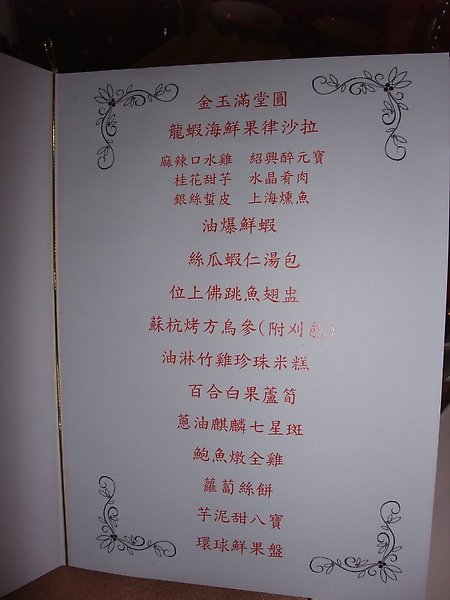 金玉滿堂圓
龍蝦海鮮果律沙拉
麻辣口水雞　紹興醉元寶
桂花甜芋　水晶肴肉
銀絲蜇皮　上海燻魚
油爆鮮蝦
絲瓜蝦仁湯包
位上佛跳魚翅盅
蘇杭烤方烏參(附刈包)
油淋竹雞珍珠米糕
百合白果蘆筍
蔥油麒麟七星斑
鮑魚燉全雞
蘿蔔絲餅
芋泥甜八寶
環球鮮果盤